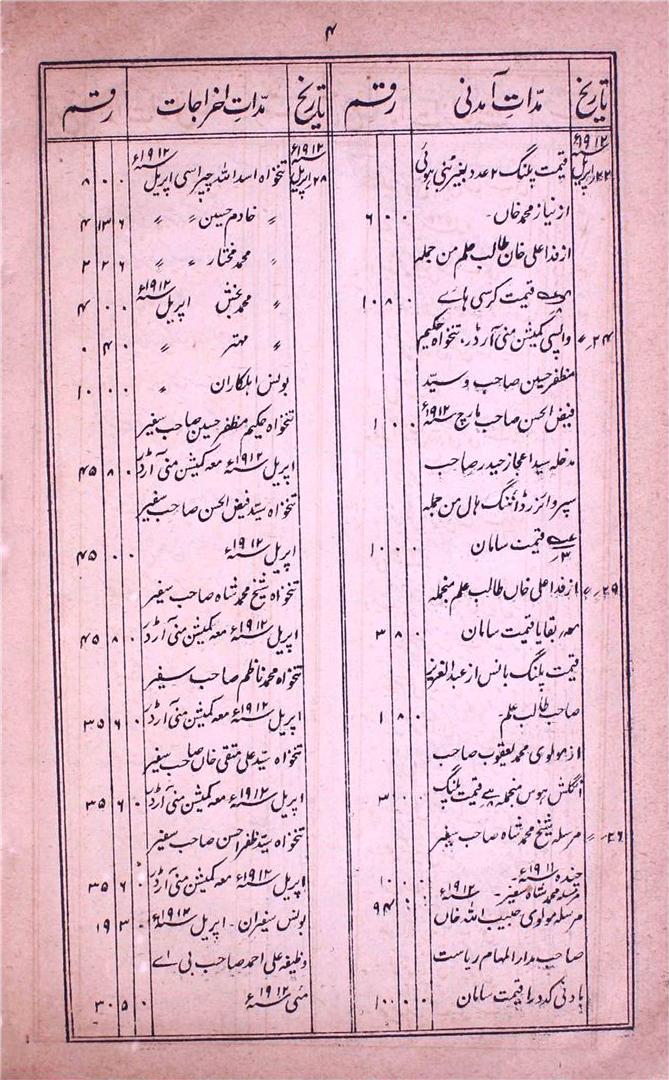 ۴
تاریخ مدّاتِ آمدنی رقم
۱۹۱۲ء
۲۲ اپریل قیمت پلنگ ۲ عدد بغیر بُنی ہوئی
از نیاز محمد خاں۔ ۶ ۰ ۰
از فدا علی خان طالب علم من جملہ
قیمت کرسی ہاے ۱۰ ۸ ۰
۲۴ ؍؍ واپسی کمیشن منی آرڈر، تنخواہ حکیم
مظفر حسین صاحب و سیّد
فیض الحسن صاحب مارچ ۱۹۱۲ء ۱ ۰ ۰
مدخلہ سید اعجاز حیدر صاحب
سپر وائزر ڈائننگ ہال من جملہ
قیمت سامان ۱۰ ۰ ۰
۲۹ ؍؍ از فدا علی خاں طالب علم منجملہ
بقایا قیمت سامان ۳ ۸ ۰
قیمت پلنگ بانس از عبد العزیز
صاحب طالب علم۔ ۱ ۸ ۰
از مولوی محمد یعقوب صاحب
انگلش ہوس منجملہ قیمت پلنگ ۳ ۰ ۰
۲۶ ؍؍ مرسلہ شیخ محمد شاہ صاحب سفیر
چندہ ۱۹۱۱ء۔ ۱۰ ۰ ۰
مرسلہ محمد شاہ سفیر۔ ۱۹۱۲ء ۹۴ ۰ ۰
مرسلہ مولوی حبیب اللہ خاں
صاحب مدار المہام ریاست
باونی کدورا قیمت سامان ۱۰۰ ۰ ۰
تاریخ مدّاتِ اخراجات رقم
۱۹۱۲ء
۲۸ اپریل تنخواہ اسد اللہ چپراسی اپریل ۱۹۱۲ء ۸ ۰ ۰
؍؍ خادم حسین ؍؍ ؍؍ ۴ ۱۳ ۶
؍؍ محمد مختار ؍؍ ؍؍ ۲ ۲ ۶
؍؍ محمد بخش اپریل ۱۹۱۲ء ۴ ۰ ۰
؍؍ مہتر ؍؍ ۰ ۴ ۰
بونس اہلکاران ؍؍ ۱۰ ۰ ۰
تنخواہ حکیم مظفر حسین صاحب سفیر
اپریل ۱۹۱۲ء معہ کمیشن منی آرڈر ۴۵ ۸ ۰
تنخواہ سیّد فیض الحسن صاحب سفیر
اپریل ۱۹۱۲ء ۴۵ ۰ ۰
تنخواہ شیخ محمد شاہ صاحب سفیر
اپریل ۱۹۱۲ء معہ کمیشن منی آرڈر ۴۵ ۸ ۰
تنخواہ محمد ناظم صاحب سفیر
اپریل ۱۹۱۲ء معہ کمیشن منی آرڈر ۳۵ ۶ ۰
تنخواہ سیّد علی متقی خاں صاحب سفیر
اپریل ۱۹۱۲ء معہ کمیشن منی آرڈر ۳۵ ۶ ۰
تنخواہ سیّد ظفر احسن صاحب سفیر
اپریل ۱۹۱۲ء معہ کمیشن منی آرڈر ۳۵ ۶ ۰
بونس سفیران۔ اپریل ۱۹۱۲ء ۱۹ ۳ ۰
وظیفہ علی احمد صاحب بی اے
مئی ۱۹۱۲ء ۳۰ ۵ ۰